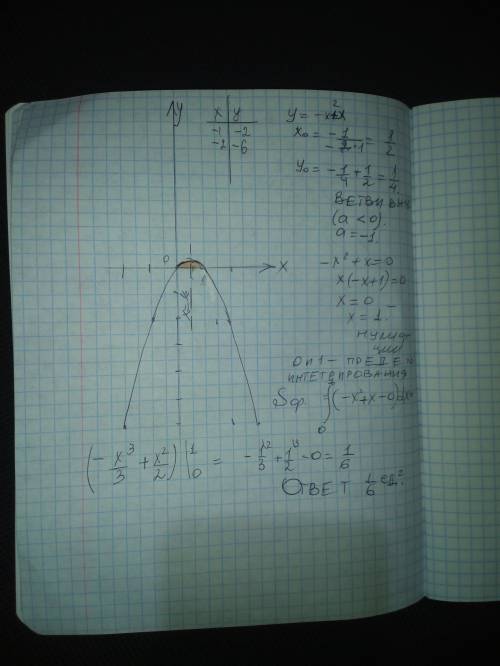 y
x y
-1 -2
-2 -6
y = -x²+x
x₀ = -1/(-2·1) = 1/2
y₀ = -1/4 + 1/2 = 1/4
ВЕТВИ ВНИЗ
(a < 0).
a = -1
0
x
1
-x² + x = 0
x(-x+1) = 0
x = 0
x = 1.
0 и 1 – ПРЕДЕЛ
ИНТЕГРИРОВАНИЯ
Sф = ∫₀¹ (-x²+x-0)dx =
(-x³/3 + x²/2) |₀¹ = -1³/3 + 1²/2 - 0 = 1/6
ОТВЕТ 1/6 ед².